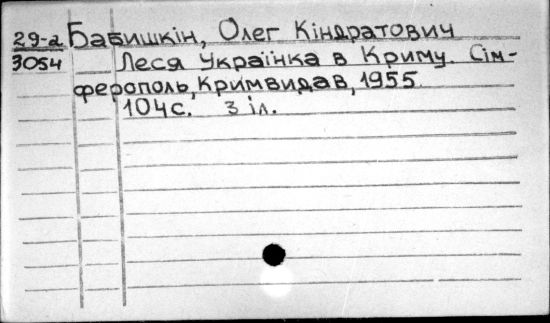 29-а Бабишкін, Олег Кіндратович
3054 Леся Українка в Криму. Сім-
ферополь, Кримвидав, 1955.
104с. з іл.